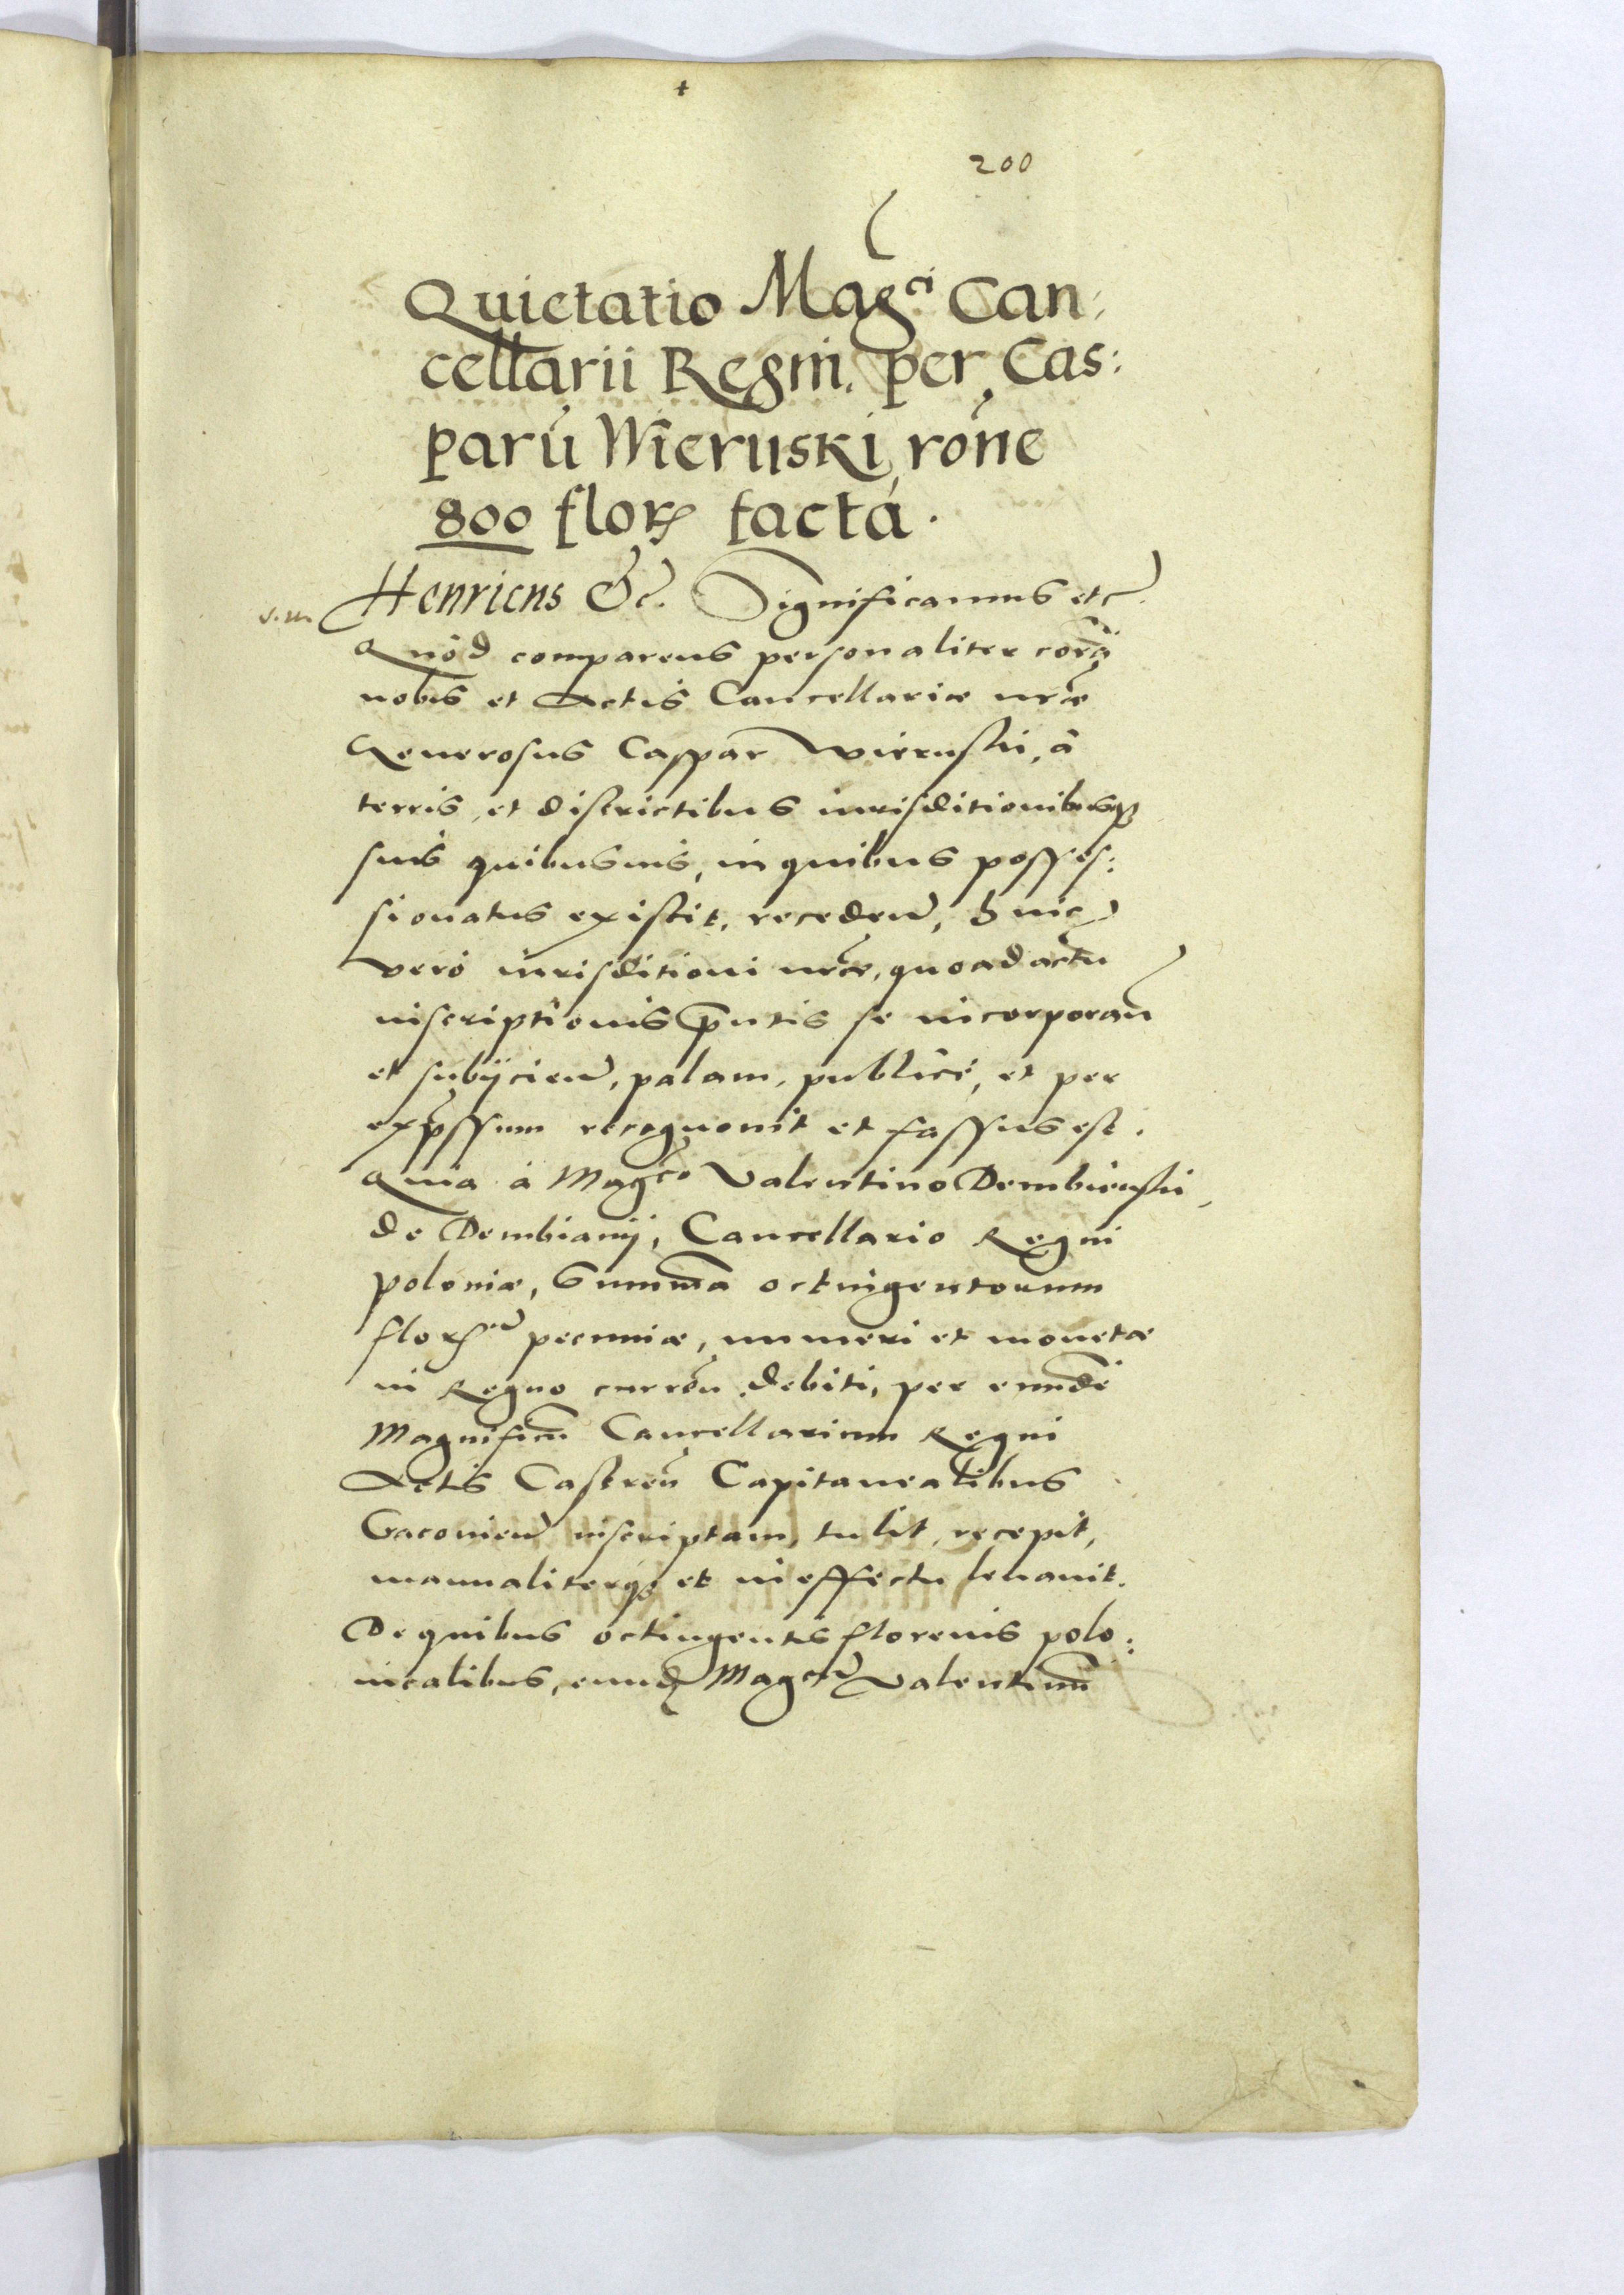 200
Quietatio Magci Can:
cellarii Regni, per Cas:
parū Wieruski rōne
800 florꝝ facta.
Henricus &c. Significamus etc.
Quod comparens personaliter corā
nobis et Actis Cancellariæ nræ
Generosus Caspar Wieruski, a
terris, et districtibus iurisditionibusqꝫ
suis quibusuis, in quibus posses:
sionatus existit, recedeñ, huic
vero iurisditioni nræ, quoad actū
inscriptionis pñtis se incorporañ
et subijcieñ, palam, publice, et per
expssum recognouit et fassus est.
Quia a Magco Valentino Dembienski,
de Dembiany, Cancellario Regni
Poloniæ, Summā octuigentorum
florꝝ pecuniæ, numeri et monetæ
in Regno curreñ debiti, per eundē
Magnificū Cancellarium Regni
Actis Castreñ Capitanealibus
Cracovieñ inscriptam, tulit, recepit,
manualiterqꝫ et in effectu leuauit.
De quibus octingentis florenis polo:
nicalibus, eund Magcū Valentinū